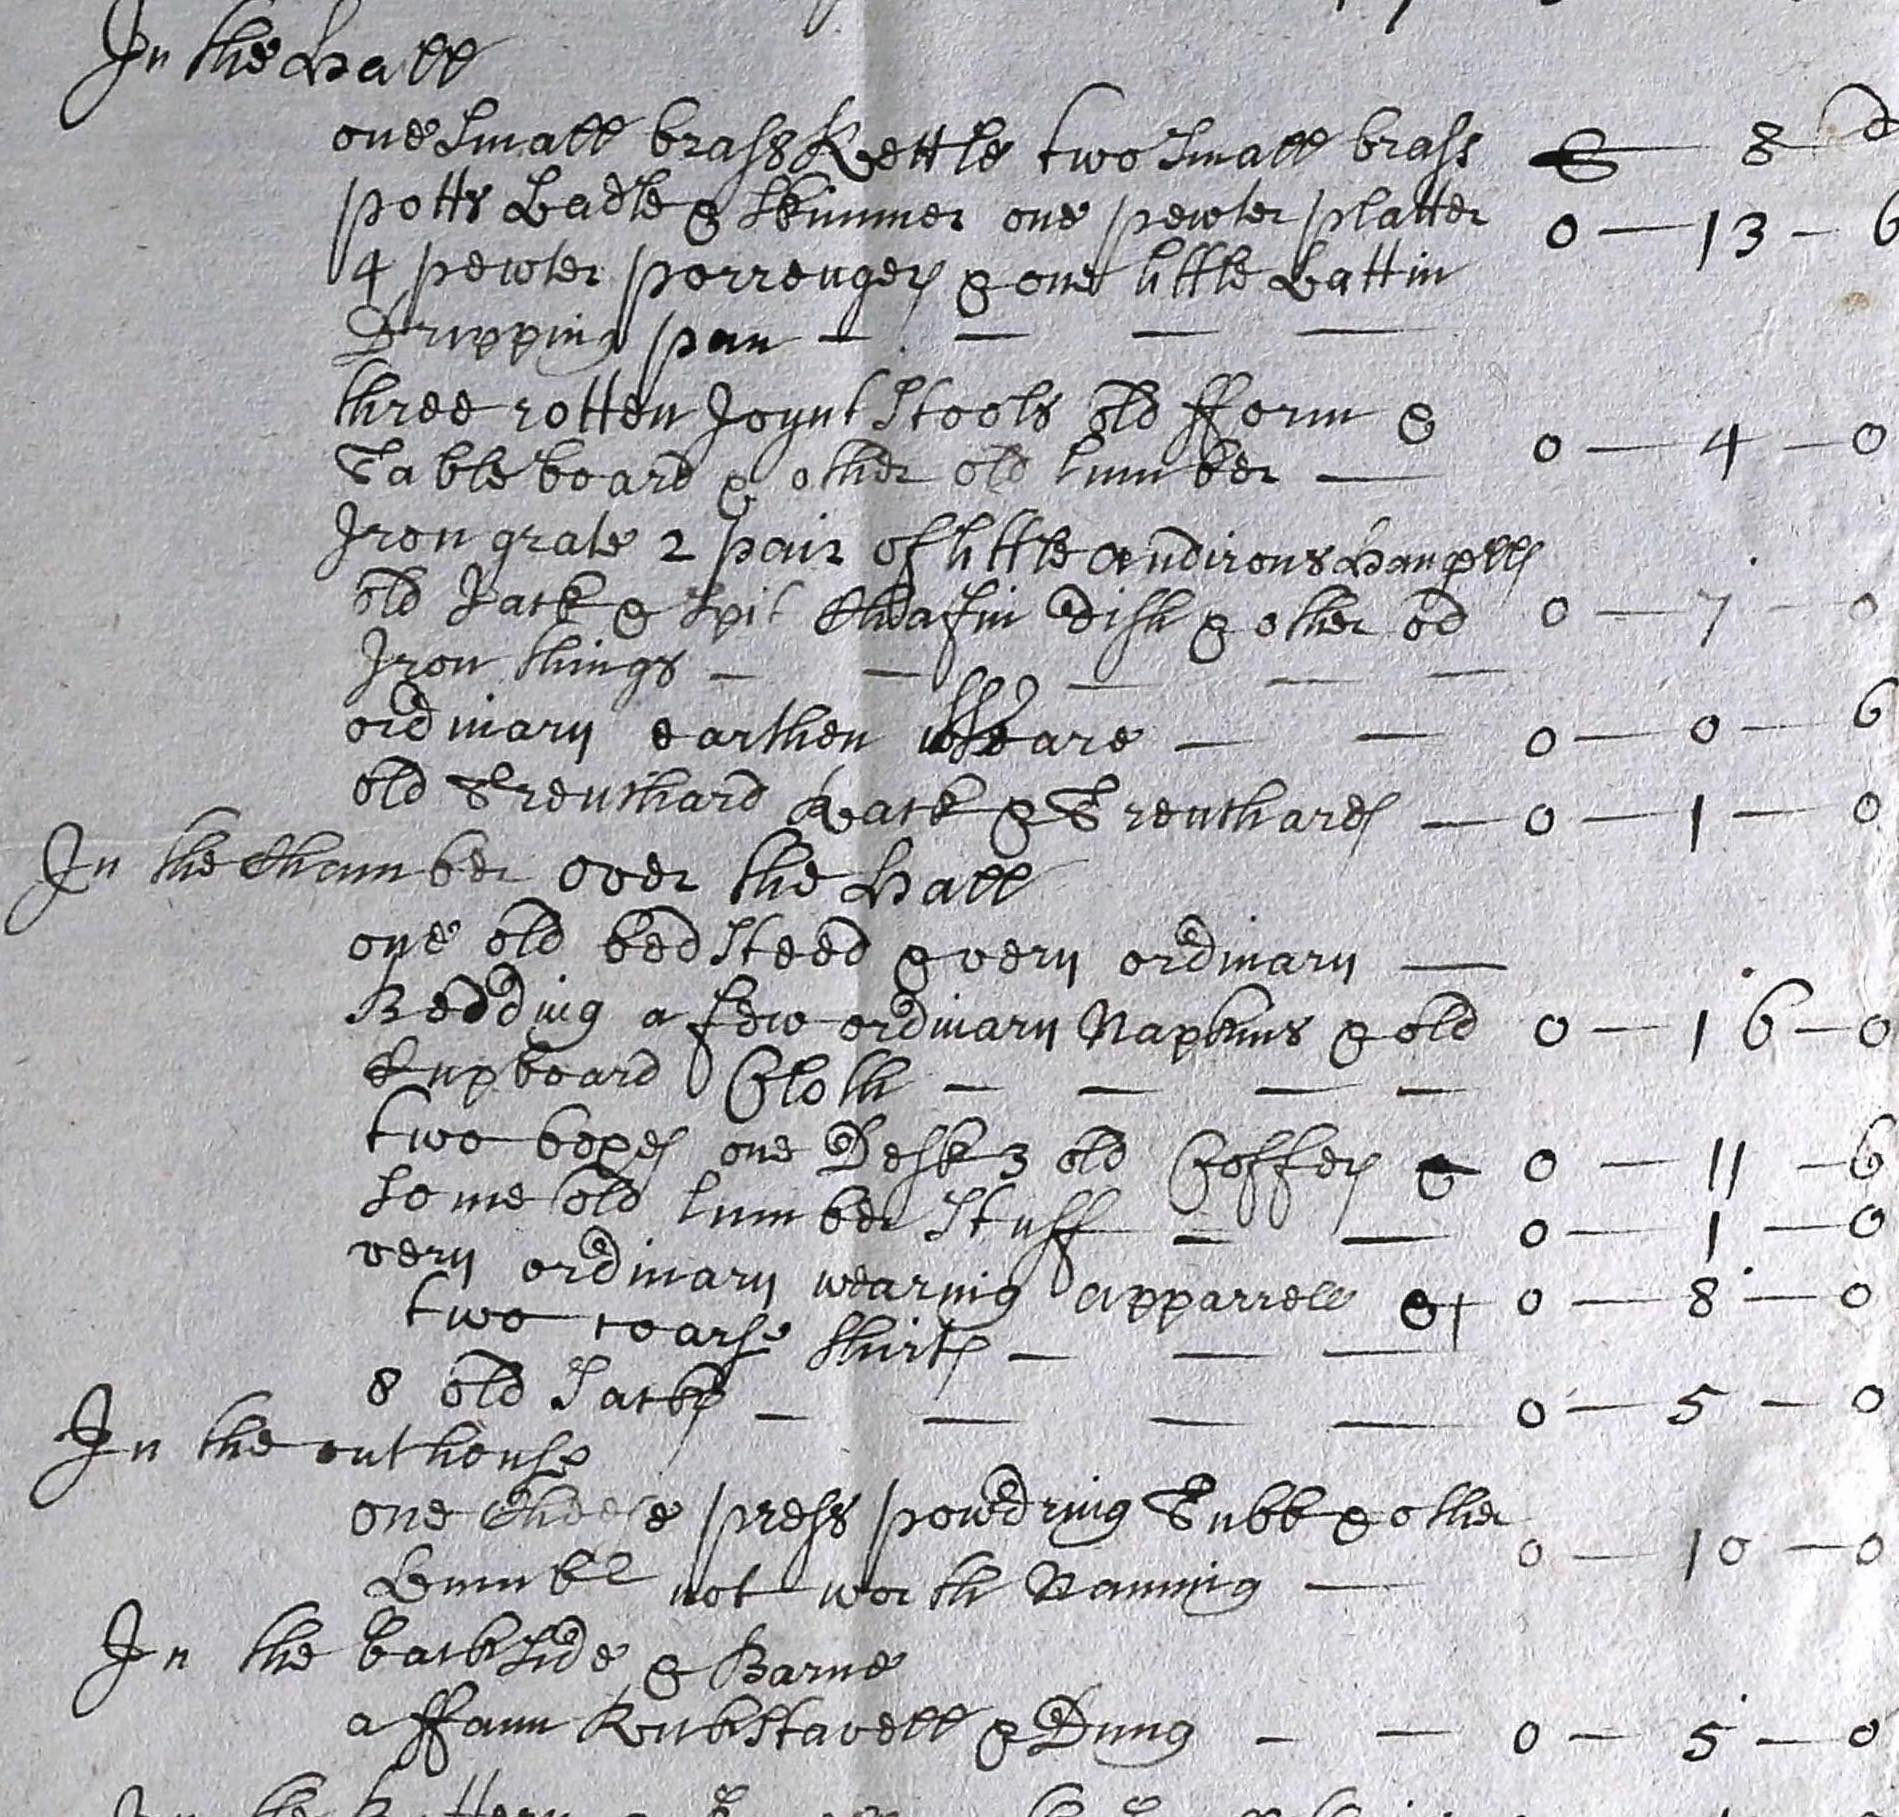 In the Hall
one small brass Kettle two small brass £ — s — d
potts Ladle & Skimmer one pewter platter 0 — 13 — 6
4 pewter porrengers & one little Lattin
Dripping pan — — — —
three rotten Joynt Stools old fform &
Table board & other old lumber — 0 — 4 — 0
Iron grate 2 pair of little andirons
old Jack & Spit Chafin dish & other od 0 — 7 — 0
Iron things — — — — —
ordinary earthen Weare — — 0 — 0 — 6
old Trenchard Rack & Trenchards — 0 — 1 — 0
In the Chamber over the Hall
one old bedsteed & very ordinary —
Bedding a few ordinary Napkins & old 0 — 16 — 0
Kupboard Cloth — — — —
two boxes one Desk 3 old Coffers & 0 — 11 — 6
some old lumber Stuff — — 0 — 1 — 0
very ordinary wearing apparrell & 0 — 8 — 0
two coarse shirts — — —
8 old Sacks — — — — 0 — 5 — 0
In the outhouse
one Cheese press powdring Tubb & other
Lumbr not worth Naming — 0 — 10 — 0
In the backside & Barne
a ffann Stavell & Dung — — 0 — 5 — 0